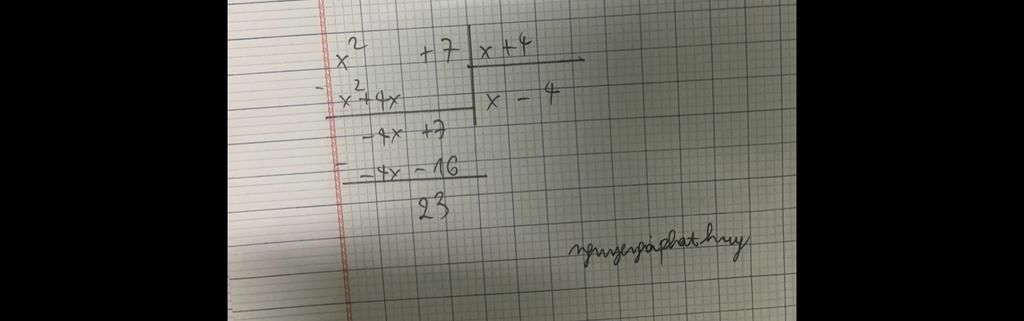 x² +7 | x+4
- x²+4x | x - 4
-4x +7
- -4x - 16
23
nguyengiaphathuy